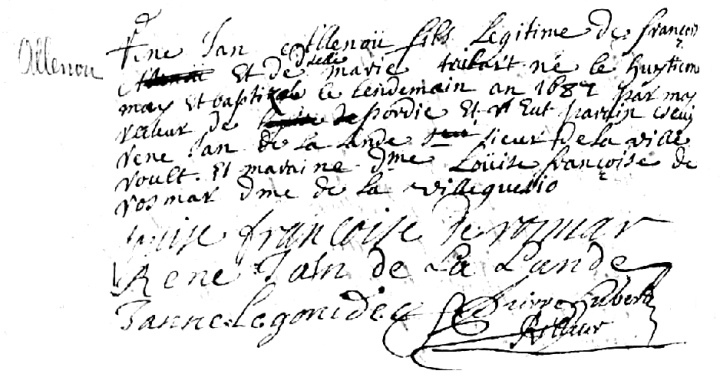 Ollenou
rene Jan ollenou fils legitime de françois
ollenou Et de delle marie tailart ne le huytiem
may Et baptize le lendemain an 1687 par moy
recteur de pordic Et Eut parain ecuy
rene Jan de la lande sieur de la ville
roult Et maraine dme Loüise françoise de
rosmar dme de la villequerio
Louise francoise de romar
Rene Jan de La Lande
Janne Legonidec Pierre hubert
Recteur